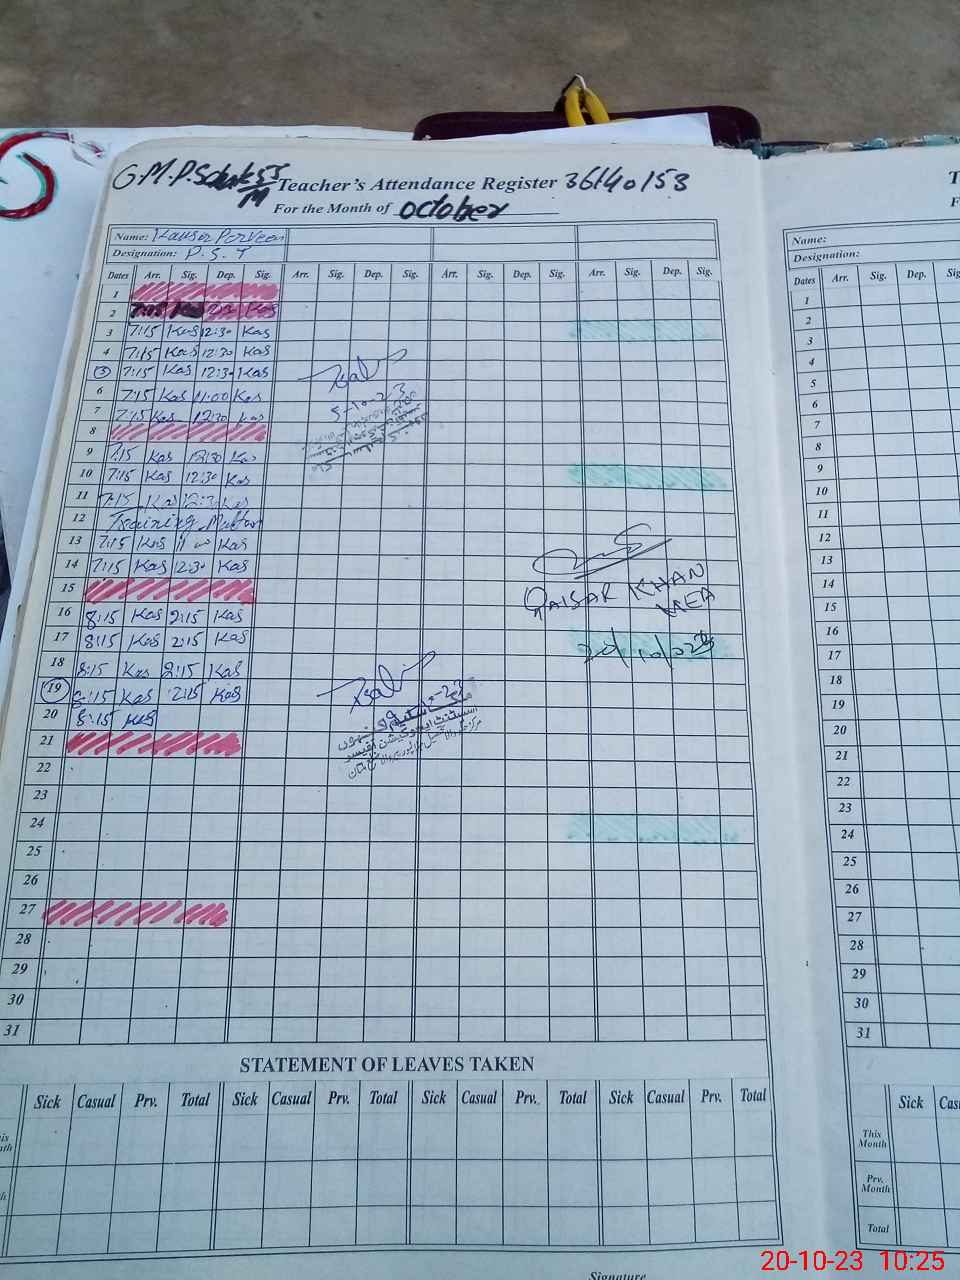 G.M.P.S Teacher's Attendance Register 36140153
For the Month of October
Name: Kausar Parveen
Designation: P.S.T
Dates Arr. Sig. Dep. Sig. Arr. Sig. Dep. Sig. Arr. Sig. Dep. Sig. Arr. Sig. Dep. Sig.
1
2 7:15 Kas
3 7:15 Kas 12:30 Kas
4 7:15 Kas 12:30 Kas
5 7:15 Kas 12:30 Kas
6 7:15 Kas 11:00 Kas
7 7:15 Kas 12:30 Kas
8
9 7:15 Kas 12:30 Kas
10 7:15 Kas 12:30 Kas
11 7:15 Kas 12:30 Kas
12 Training
13 7:15 Kas 11:00 Kas
14 7:15 Kas 12:30 Kas
15
16 8:15 Kas 2:15 Kas
17 8:15 Kas 2:15 Kas
18 8:15 Kas 2:15 Kas
19 8:15 Kas 2:15 Kas
20 8:15 Kas
21
22
23
24
25
26
27
28
29
30
31
5-10-23
QAISAR KHAN
MEA
20/10/023
اسسٹنٹ ایجوکیشن آفیسر
STATEMENT OF LEAVES TAKEN
Sick Casual Prv. Total Sick Casual Prv. Total Sick Casual Prv. Total Sick Casual Prv. Total
Signature
Name:
Designation:
Dates Arr. Sig. Dep.
1
2
3
4
5
6
7
8
9
10
11
12
13
14
15
16
17
18
19
20
21
22
23
24
25
26
27
28
29
30
31
Sick
This Month
Prv. Month
Total
20-10-23 10:25